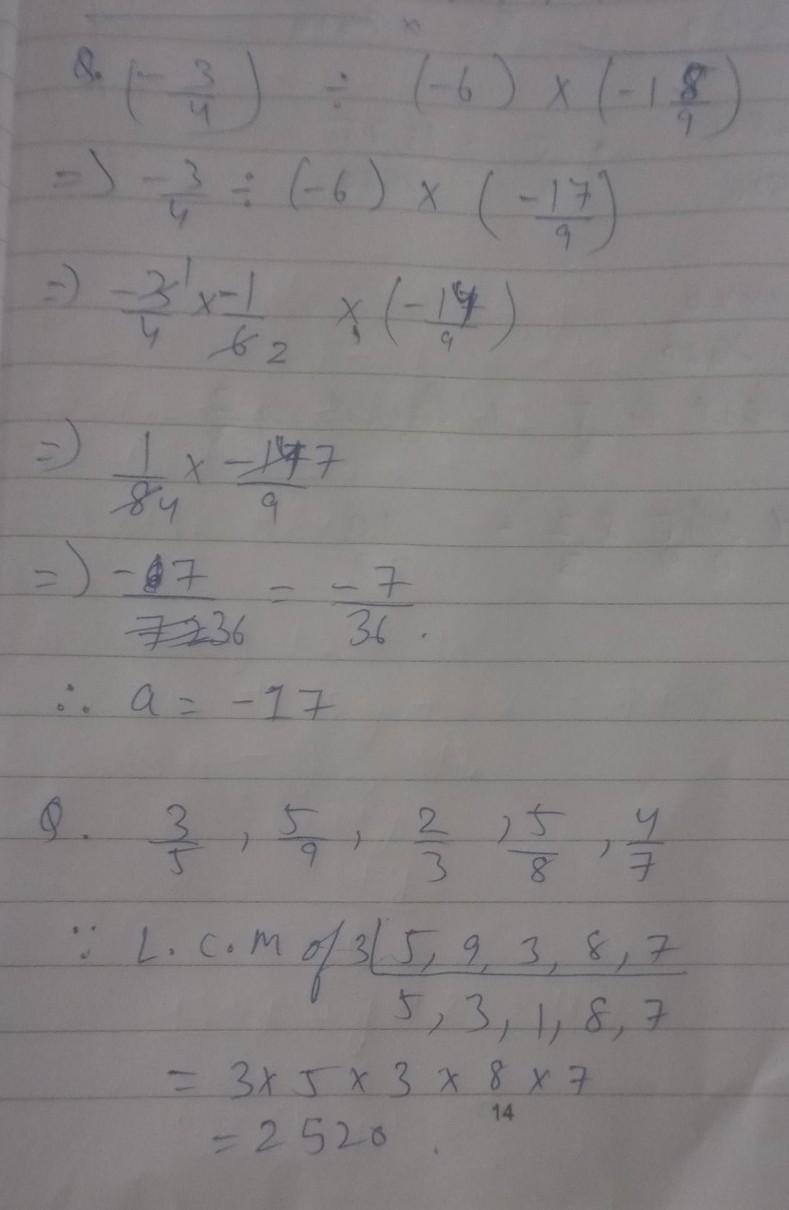 Q. (-3/4) ÷ (-6) × (-1 8/9)
=) -3/4 ÷ (-6) × (-17/9)
=) -3 1/4 × -1/6 2 × (-17/9)
=) 1/8 4 × -17 7/9
=) -7/72 36 = -7/36.
∴ a = -17
Q. 3/5, 5/9, 2/3, 5/8, 4/7
∵ L.C.M of 3|5, 9, 3, 8, 7
5, 3, 1, 8, 7
= 3 × 5 × 3 × 8 × 7
14
= 2520.